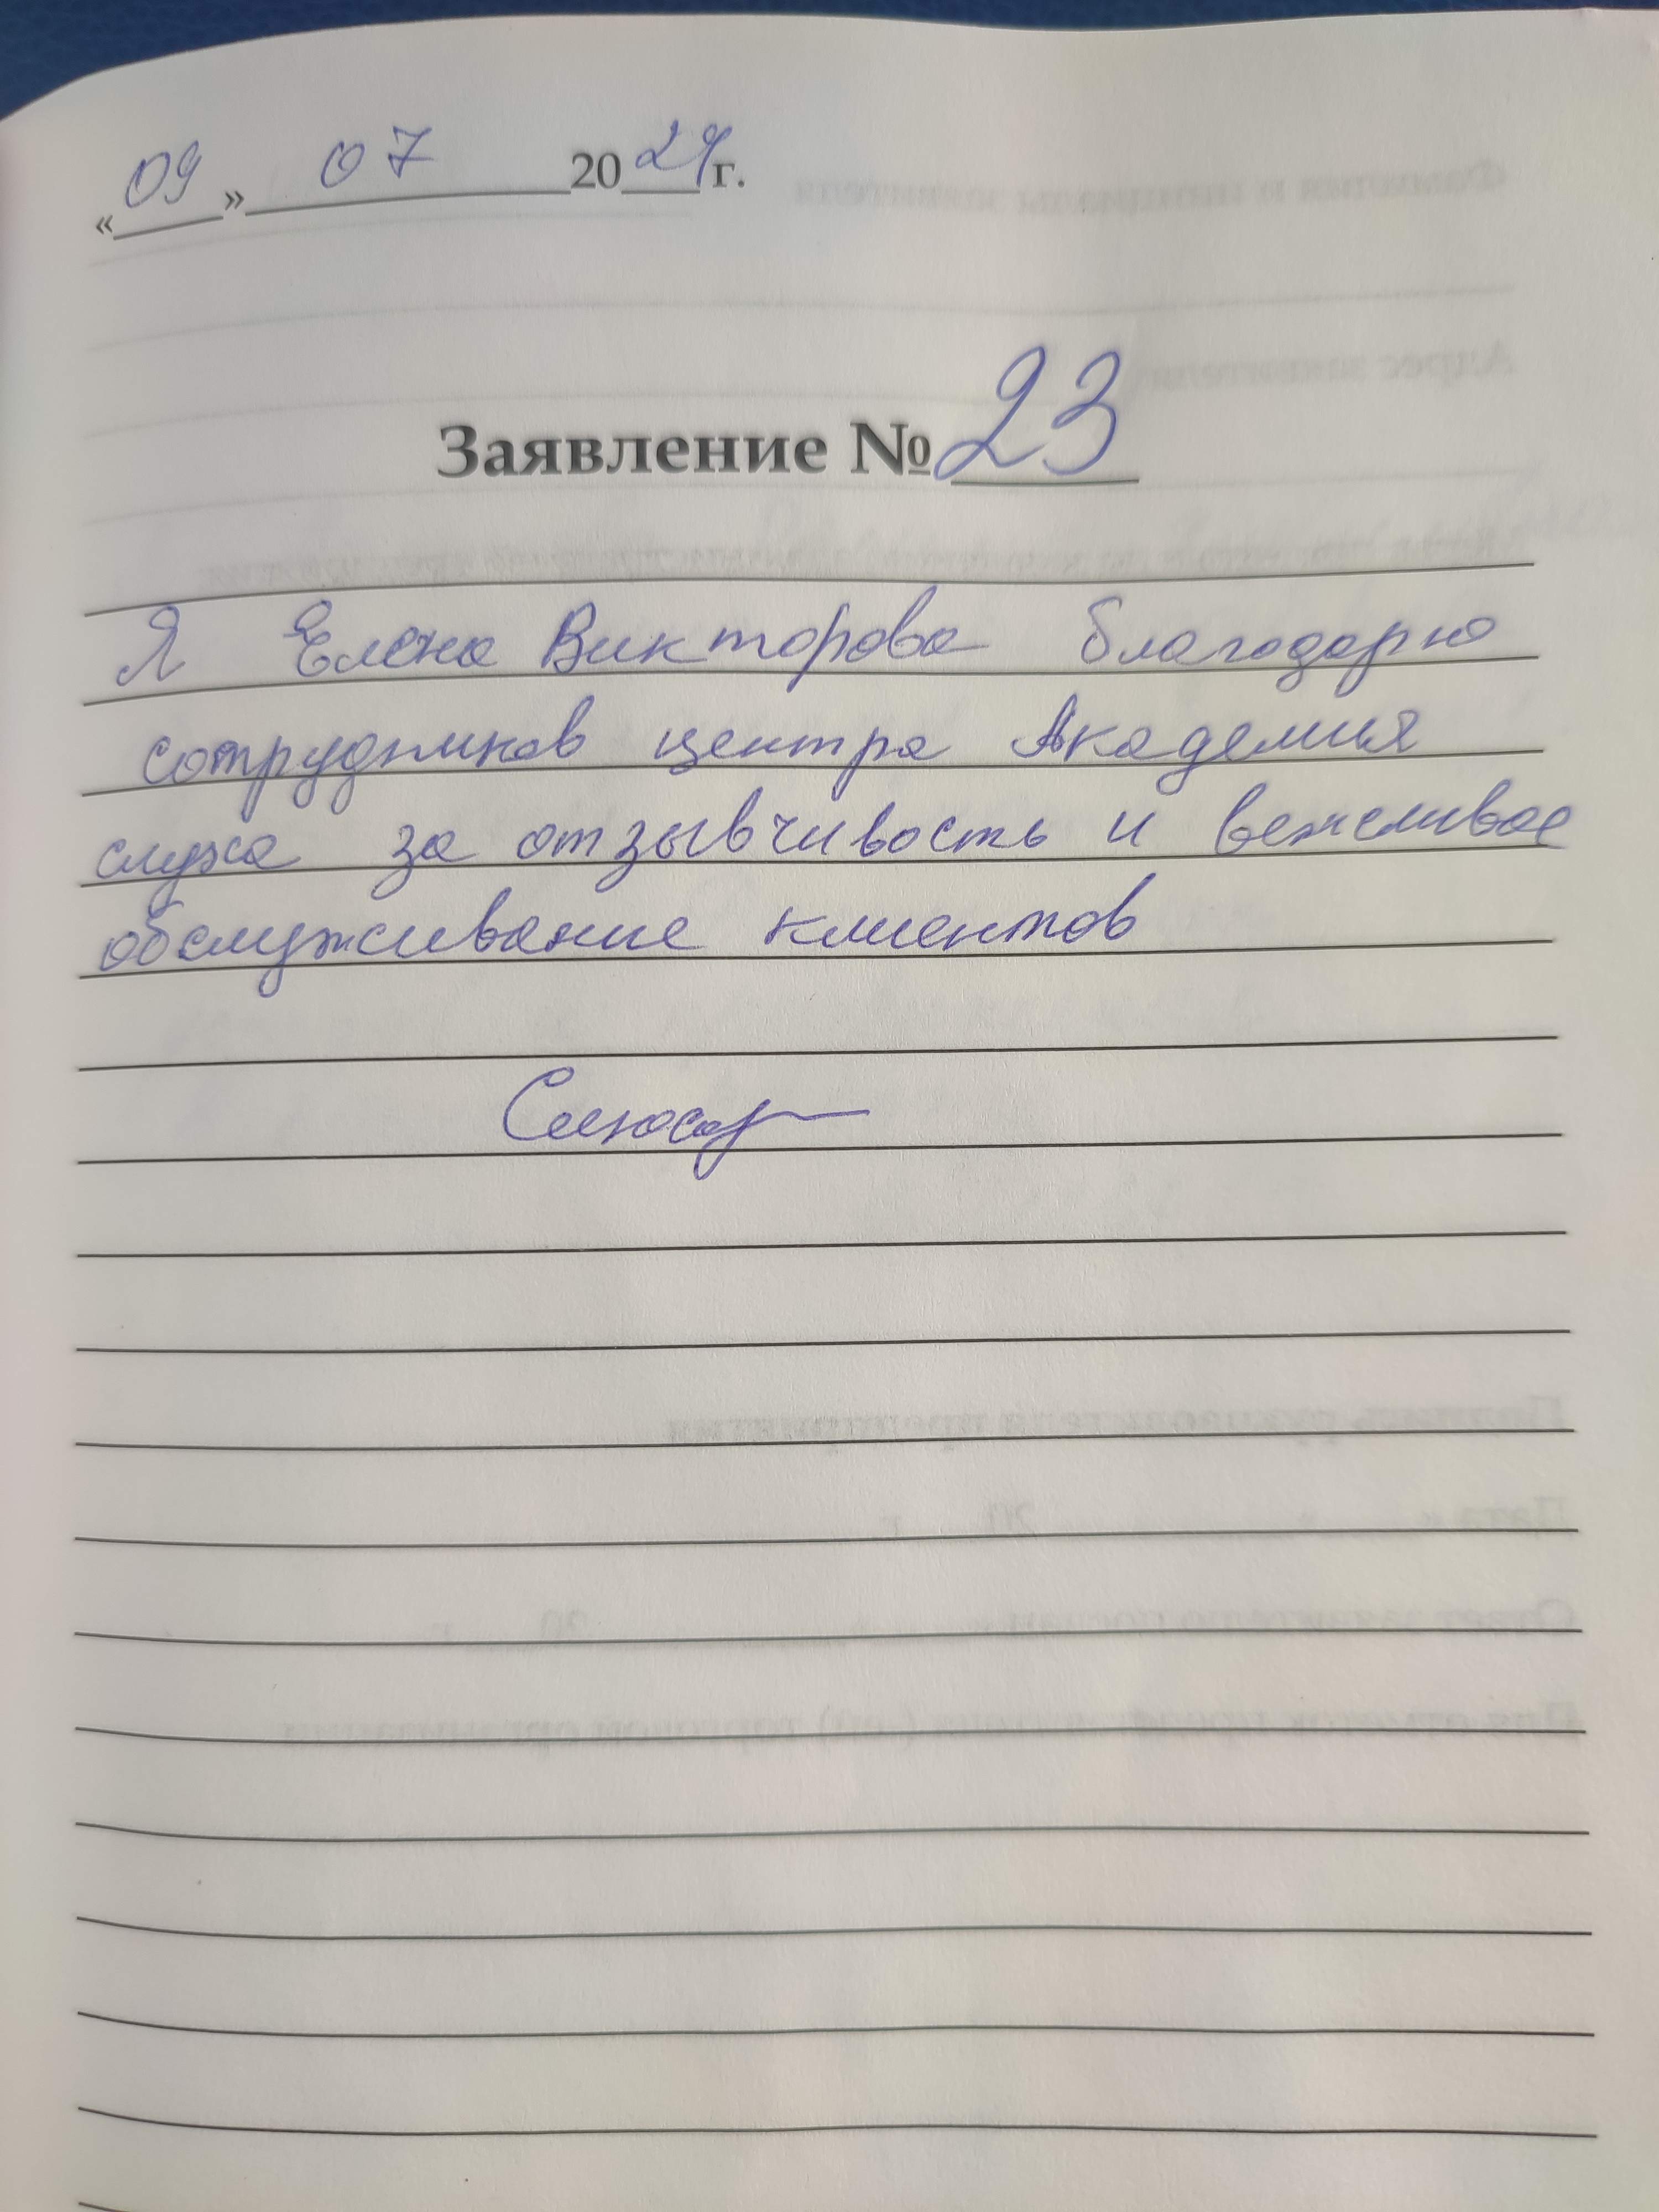 «09» 07 2024 г.
Заявление № 23
Я Елена Викторова благодарю
сотрудников центра Академия
слуха за отзывчивость и вежливое
обслуживание клиентов